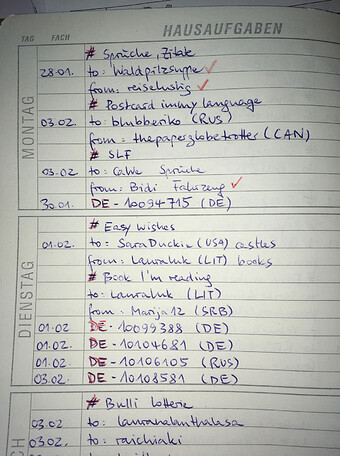 HAUSAUFGABEN
TAG FACH
MONTAG
# Sprüche, Zitate
28.01. to: Waldpilzsuppe ✓
from: reiselustig ✓
# Postcard in my language
03.02. to: blubberiko (RUS)
from: thepaperglobetrotter (CAN)
# SLF
03.02. to: CaWe Sprüche
from: Bidi Fahrzeug ✓
30.01. DE-10094715 (DE)
DIENSTAG
# Easy wishes
01.02. to: SaraDuckie (USA) castles
from: Lauraluk (LIT) books
# Book I'm reading
to: Lauraluk (LIT)
from: Marija12 (SRB)
01.02 DE-10099388 (DE)
01.02. DE-10104681 (DE)
01.02. DE-10106105 (RUS)
03.02. DE-10108581 (DE)
# Bulli lotterie
03.02 to:
03.02. to: raichiaki